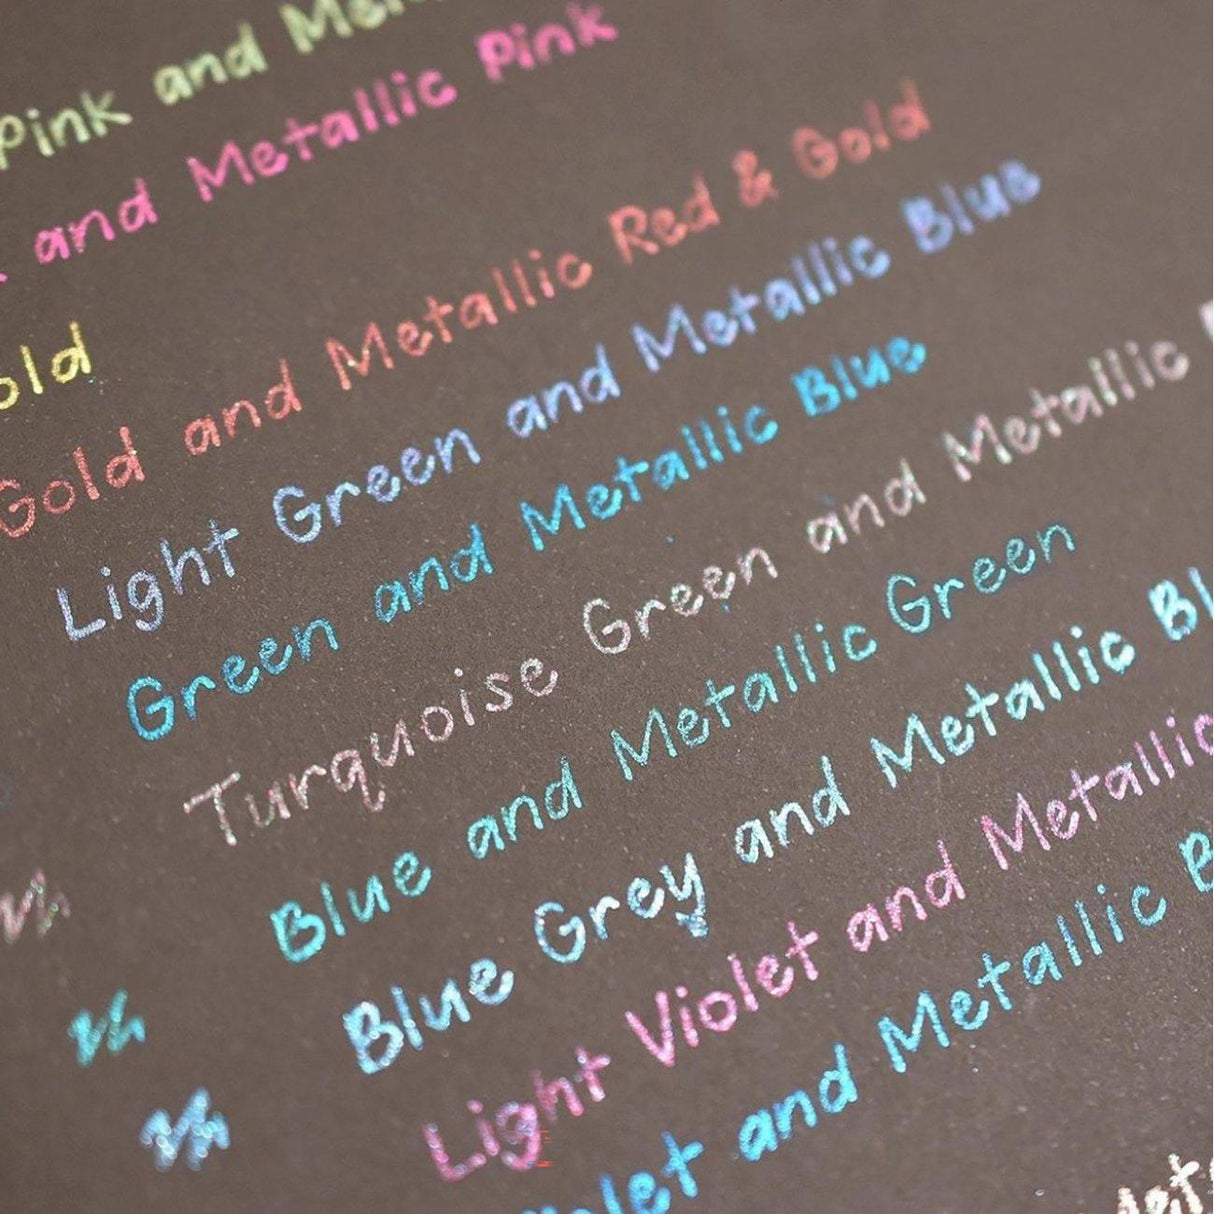 Pink and Metal
and Metallic Pink
old
Gold and Metallic Red & Gold
Light Green and Metallic Blue
Green and Metallic Blue
Turquoise Green and Metallic
Blue and Metallic Green
Blue Grey and Metallic Bl
Light Violet and Metallic
olet and Metallic B